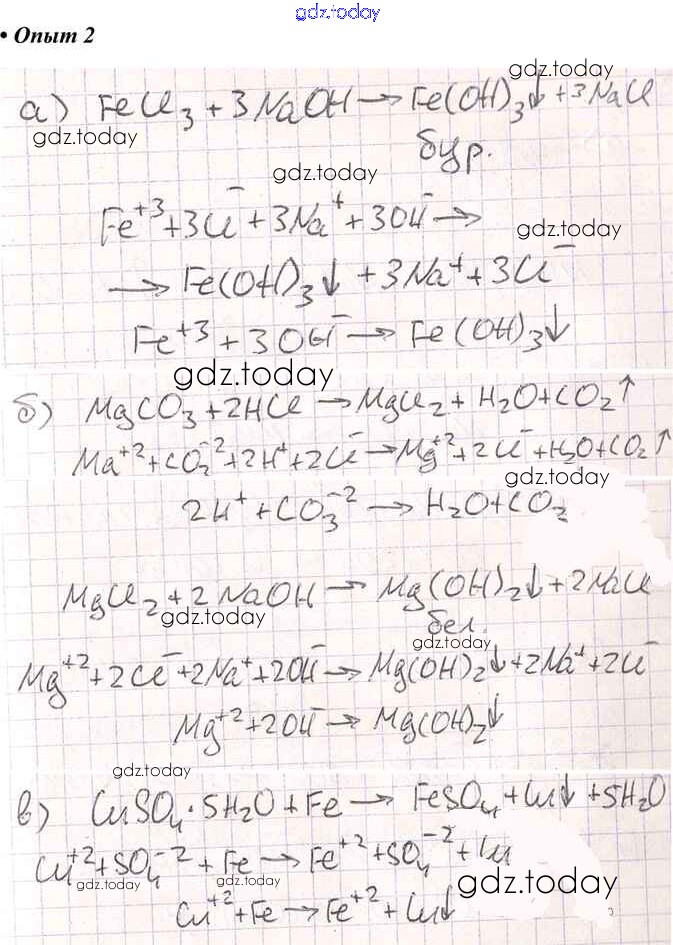 gdz.today
• Опыт 2
gdz.today
а) FeCl₃ + 3NaOH → Fe(OH)₃↓ + 3NaCl
gdz.today
бур.
gdz.today
Fe⁺³ + 3Cl⁻ + 3Na⁺ + 3OH⁻ →
gdz.today
→ Fe(OH)₃↓ + 3Na⁺ + 3Cl⁻
Fe⁺³ + 3OH⁻ → Fe(OH)₃↓
gdz.today
б) MgCO₃ + 2HCl → MgCl₂ + H₂O + CO₂↑
Ma⁺² + CO₂⁻² + 2H⁺ + 2Cl⁻ → Mg⁺² + 2Cl⁻ + H₂O + CO₂↑
gdz.today
2H⁺ + CO₃⁻² → H₂O + CO₂
MgCl₂ + 2NaOH → Mg(OH)₂↓ + 2NaCl
gdz.today
бел.
gdz.today
Mg⁺² + 2Cl⁻ + 2Na⁺ + 2OH⁻ → Mg(OH)₂↓ + 2Na⁺ + 2Cl⁻
Mg⁺² + 2OH⁻ → Mg(OH)₂↓
gdz.today
в) CuSO₄ · 5H₂O + Fe → FeSO₄ + Cu↓ + 5H₂O
Cu⁺² + SO₄⁻² + Fe → Fe⁺² + SO₄⁻² + Cu
gdz.today
gdz.today
gdz.today
Cu⁺² + Fe → Fe⁺² + Cu↓